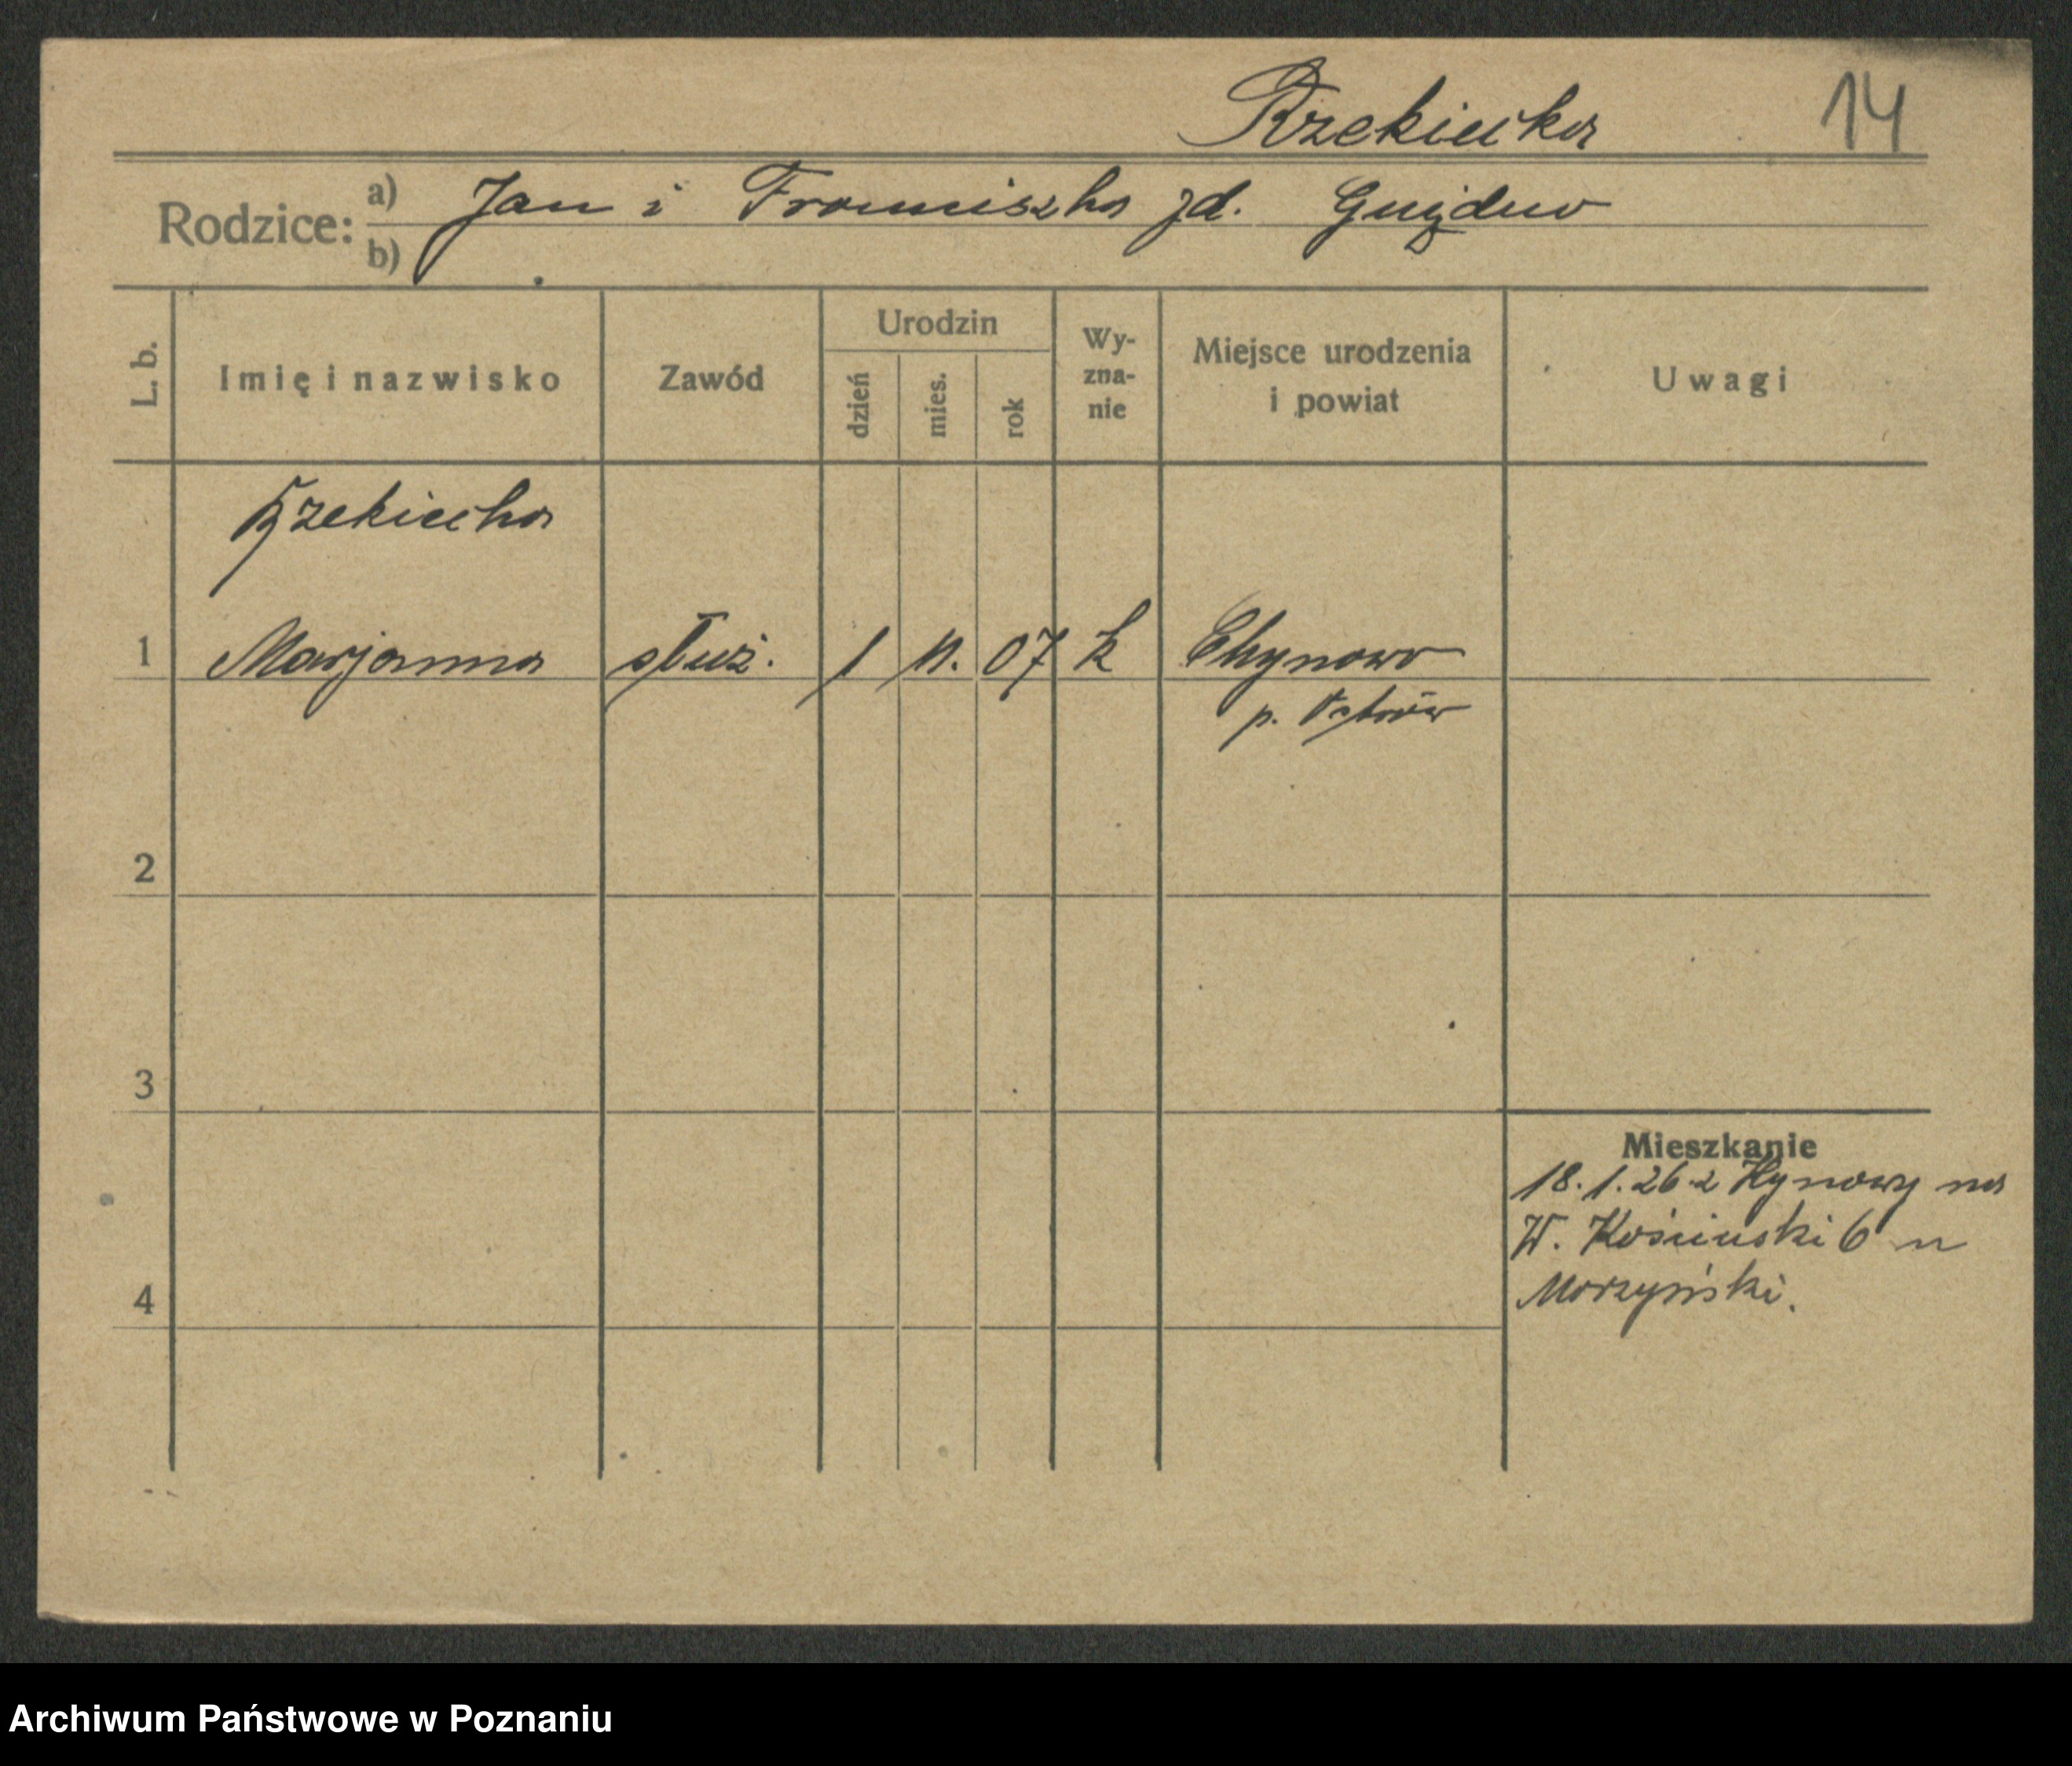 Rzekiecka 14
Rodzice: a) Jan i Franciszka zd.
b)
L. b. Imię i nazwisko Zawód Urodzin dzień mies. rok Wy-zna-nie Miejsce urodzenia i powiat Uwagi
Rzekiecka
1 Marjanna służ. 1 11. 07 k Chynowo
p. Ostrów
2
3
Mieszkanie
18.1.26 z Hynowy na
W. 6 u
4 Morzyński.
Archiwum Państwowe w Poznaniu